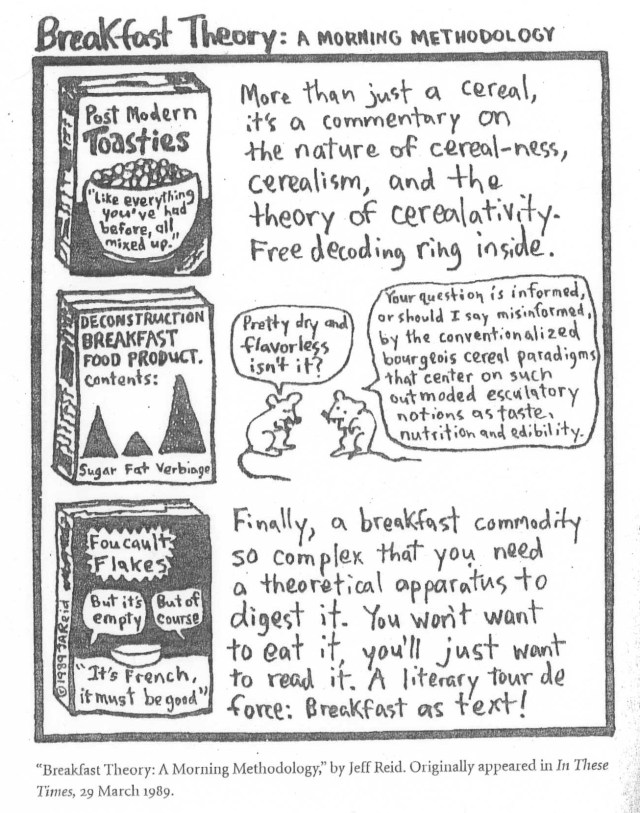 Breakfast Theory: A MORNING METHODOLOGY
Post Modern
Toasties
"Like everything
you've had
before, all
mixed up."
More than just a cereal,
it's a commentary on
the nature of cereal-ness,
cerealism, and the
theory of cerealativity.
Free decoding ring inside.
DECONSTRUCTION
BREAKFAST
FOOD PRODUCT.
Contents:
Sugar Fat Verbiage
Pretty dry and
flavorless
isn't it?
Your question is informed,
or should I say misinformed,
by the conventionalized
bourgeois cereal paradigms
that center on such
outmoded esculatory
notions as taste,
nutrition and edibility.
Foucault
Flakes
But it's
empty
But of
course
"It's French,
it must be good"
©1989 JAReid
Finally, a breakfast commodity
so complex that you need
a theoretical apparatus to
digest it. You won't want
to eat it, you'll just want
to read it. A literary tour de
force: Breakfast as text!
"Breakfast Theory: A Morning Methodology," by Jeff Reid. Originally appeared in In These
Times, 29 March 1989.